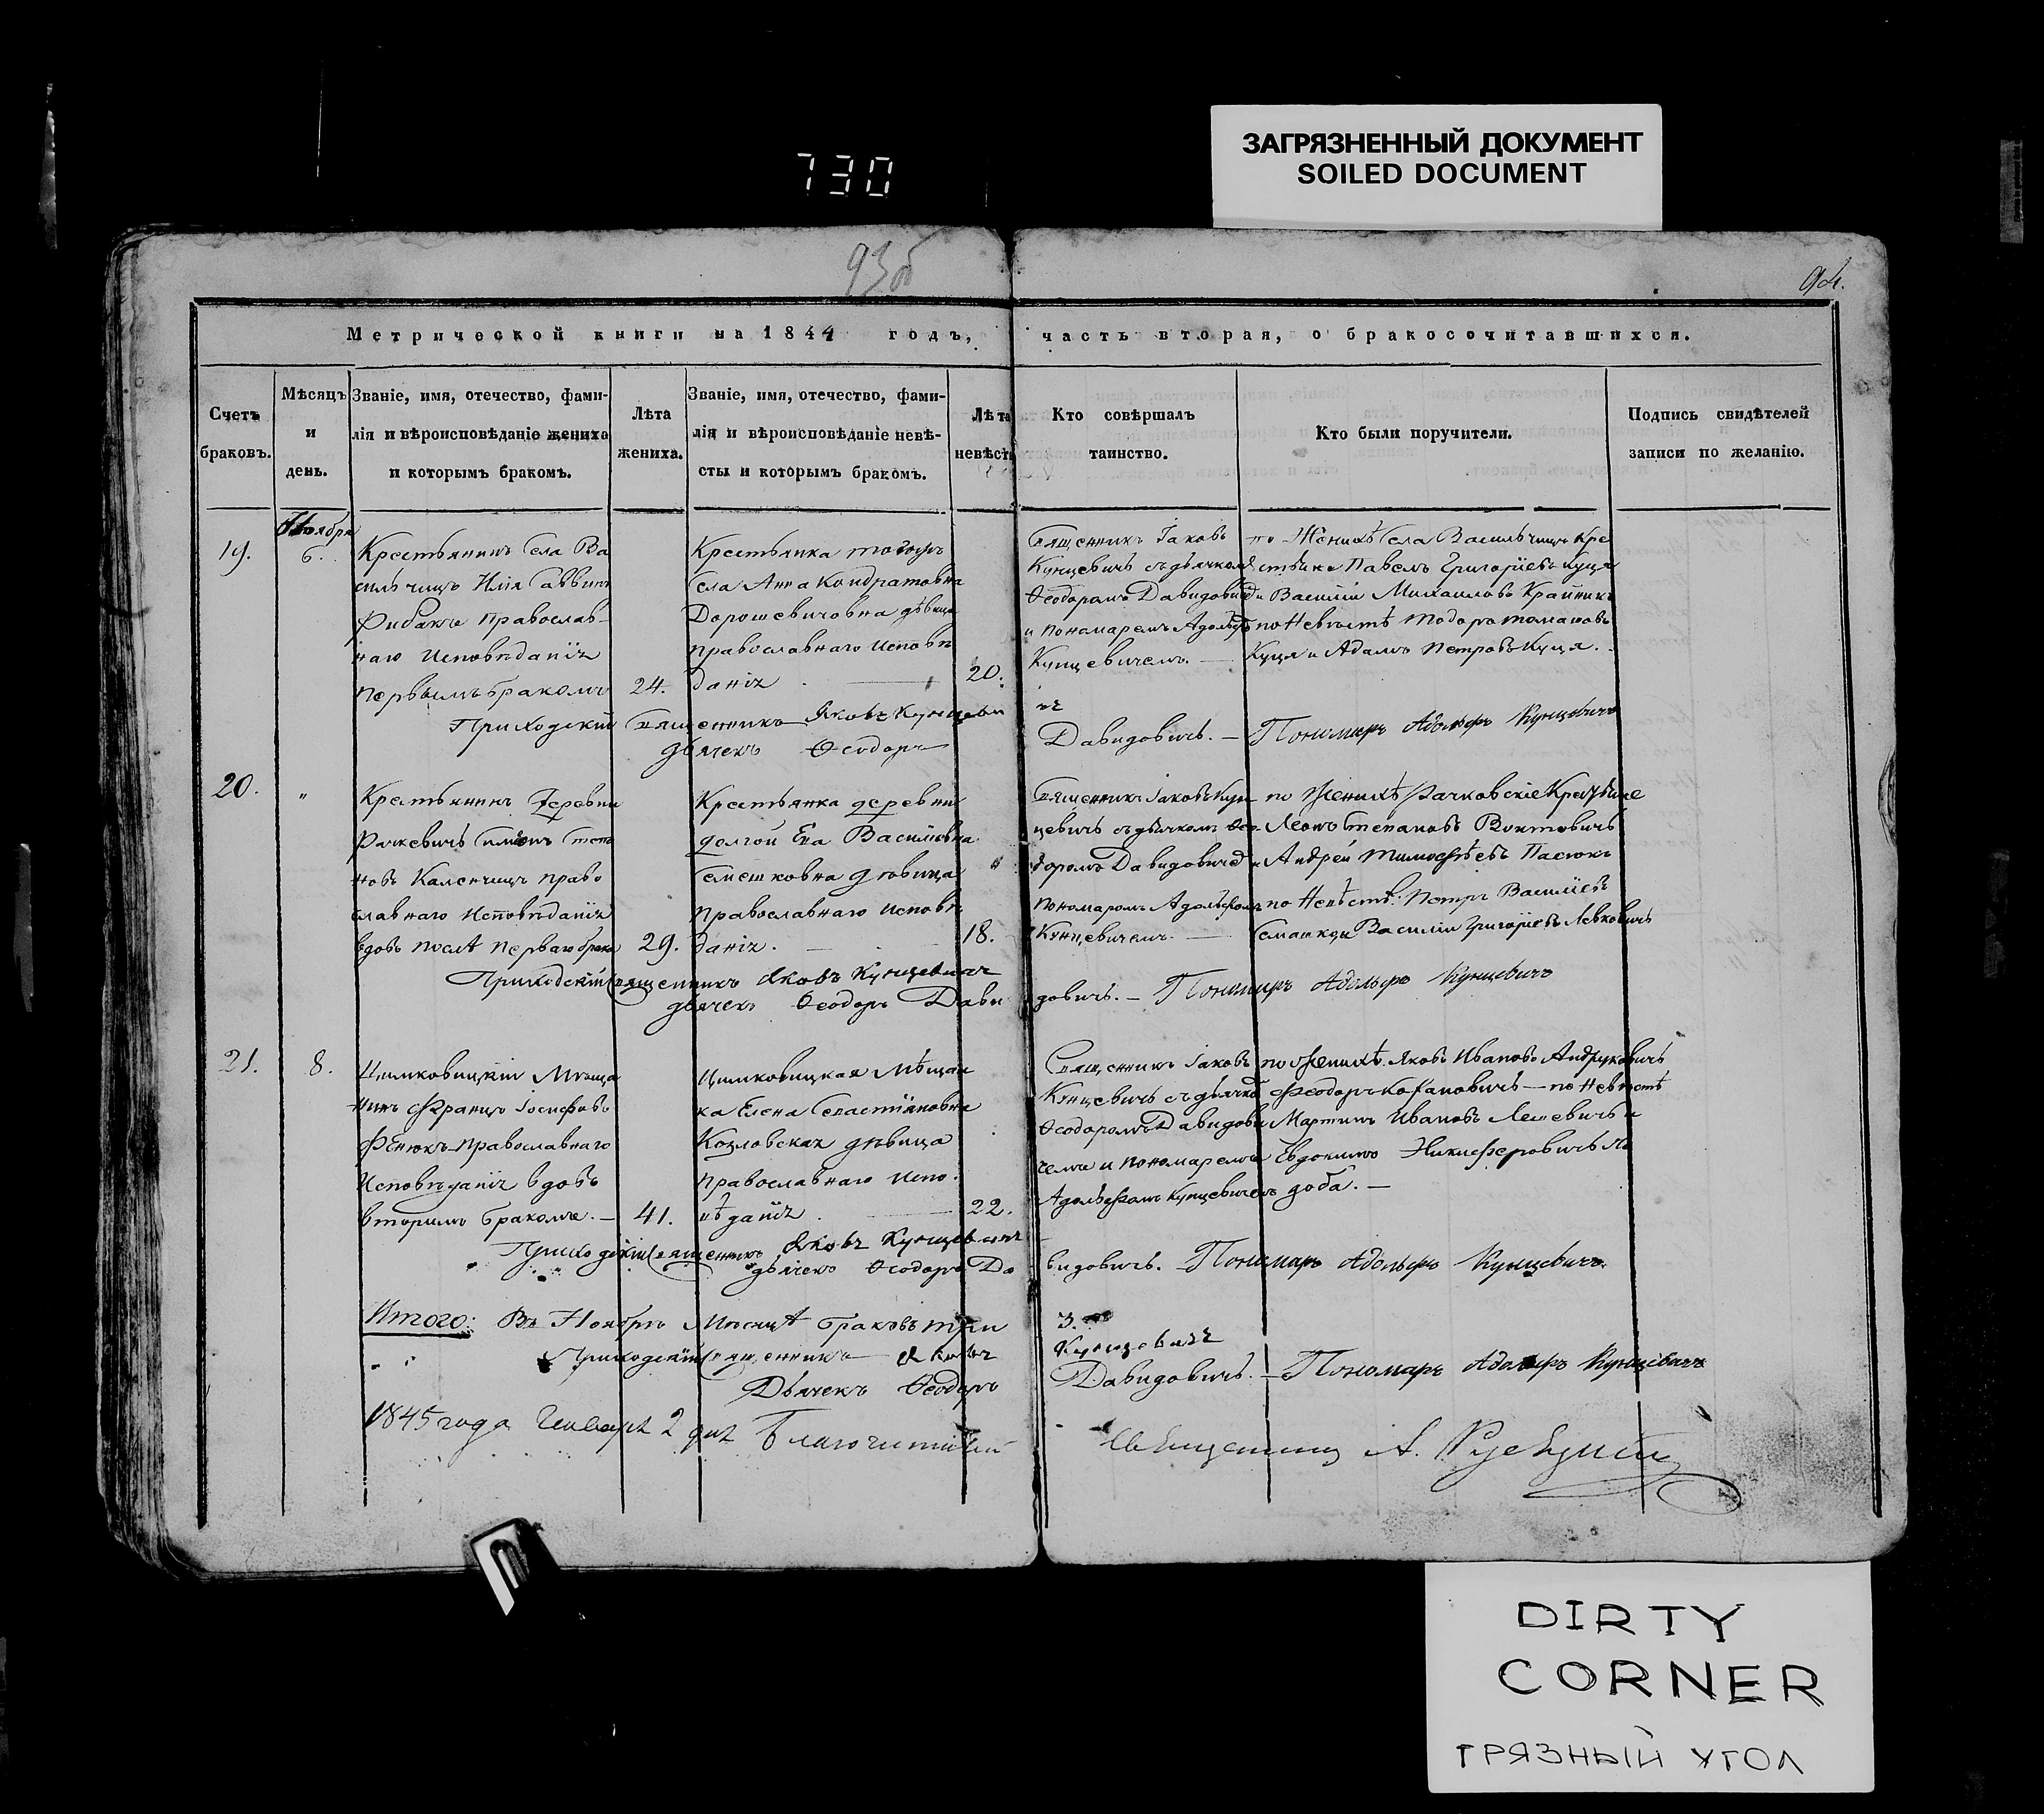 730
ЗАГРЯЗНЕННЫЙ ДОКУМЕНТ
SOILED DOCUMENT
93об
94.
Метрической книги на 1844 годъ, часть вторая, о бракосочитавшихся.
Счетъ
браковъ.
Мѣсяцъ
и
день.
Званіе, имя, отечество, фами-
лія и вѣроисповѣданіе жениха
и которымъ бракомъ.
Лѣта
жениха.
Званіе, имя, отечество, фами-
лія и вѣроисповѣданіе невѣ-
сты и которымъ бракомъ.
Лѣта
невѣсты
Кто совѣршалъ
таинство.
Кто были поручители.
Подпись свидѣтелей
записи по желанію.
19.
Ноября
6.
Крестьянинъ села Ва
сильчицъ Илія Саввинъ
Рибакъ Православ-
наго Исповѣданія
первымъ бракомъ
24.
Крестьянка тогожъ
села Анна Кондратовна
Дорошевичовна дѣвица
православнаго исповѣ
данія
20.
Священникъ Іаковъ
Кунцевичъ съ дьячкомъ
Ѳеодоромъ Давидовичемъ
и пономаремъ Адольфомъ
Кунцевичемъ. —
по Женихѣ села Васильчицъ Кре
стьяне Павелъ Григоріевъ Куця
и Василій Михаиловъ Крайникъ
по Невѣстѣ Тодоръ Томашовъ
Куця и Адамъ Петровъ Куця.
Приходскій Священникъ Яковъ Кунцеви
чъ
дьячекъ Ѳеодоръ Давидовичъ. — Пономаръ Адольфъ Кунцевичъ
20.
"
Крестьянинъ деревни
Рачкевичь Симеонъ Степа
новъ Каленчицъ право
славнаго Исповѣданія
вдовъ послѣ перваго брака
29.
Крестьянка деревни
долгой Ева Василіевна
Семешковна дѣвица
православнаго исповѣ
данія.
18.
Священникъ Іаковъ Кун
цевичъ съ дьячкомъ Ѳео-
доромъ Давидовичемъ
пономаромъ Адольфомъ
Кунцевичемъ. —
по Женихѣ Рачковскіе Крестьяне
Леонъ Степановъ Воитовичъ
и Андрей Тимофѣевъ Пасюкъ
по Невѣстѣ: Петръ Василіевъ
Семашко и Василій Григоріевъ Левковичъ
Приходскій Священникъ Яковъ Кунцевичъ
дьячекъ Ѳеодоръ Давидовичъ. — Пономаръ Адольфъ Кунцевичъ
21.
8.
Цимковицкій Мѣща
нинъ Францъ Іосифовъ
Фенюкъ Православнаго
Исповѣданія вдовъ
вторимъ бракомъ. —
41.
Цимковицкая Мѣщан
ка Елена Севастіяновна
Козловская дѣвица
православнаго испо
вѣданія
22.
Священникъ Іаковъ
Кунцевичъ съ дьячко
Ѳеодоромъ Давидови
чемъ и пономаремъ
Адольфомъ Кунцевичемъ
по Женихѣ: Яковъ Ивановъ Андруковичъ
Феодоръ Кохановичъ — по Невѣстѣ
Мартинъ Ивановъ Лешевичъ и
Евдокимъ Никиферовичъ Ло
доба. —
Приходскій Священникъ Яковъ Кунцевичъ
дьячекъ Ѳеодоръ Давидовичъ. Пономаръ Адольфъ Кунцевичъ
Итого: Въ Ноябрѣ Мѣсяцѣ браковъ три 3.
Приходскій Священникъ Яковъ Кунцевичъ
Дьячекъ Ѳеодоръ Давидовичъ. — Пономаръ Адольфъ Кунцевичъ
1845 года Генваря 2 дня Благочинный Священникъ А.
DIRTY
CORNER
ГРЯЗНЫЙ УГОЛ